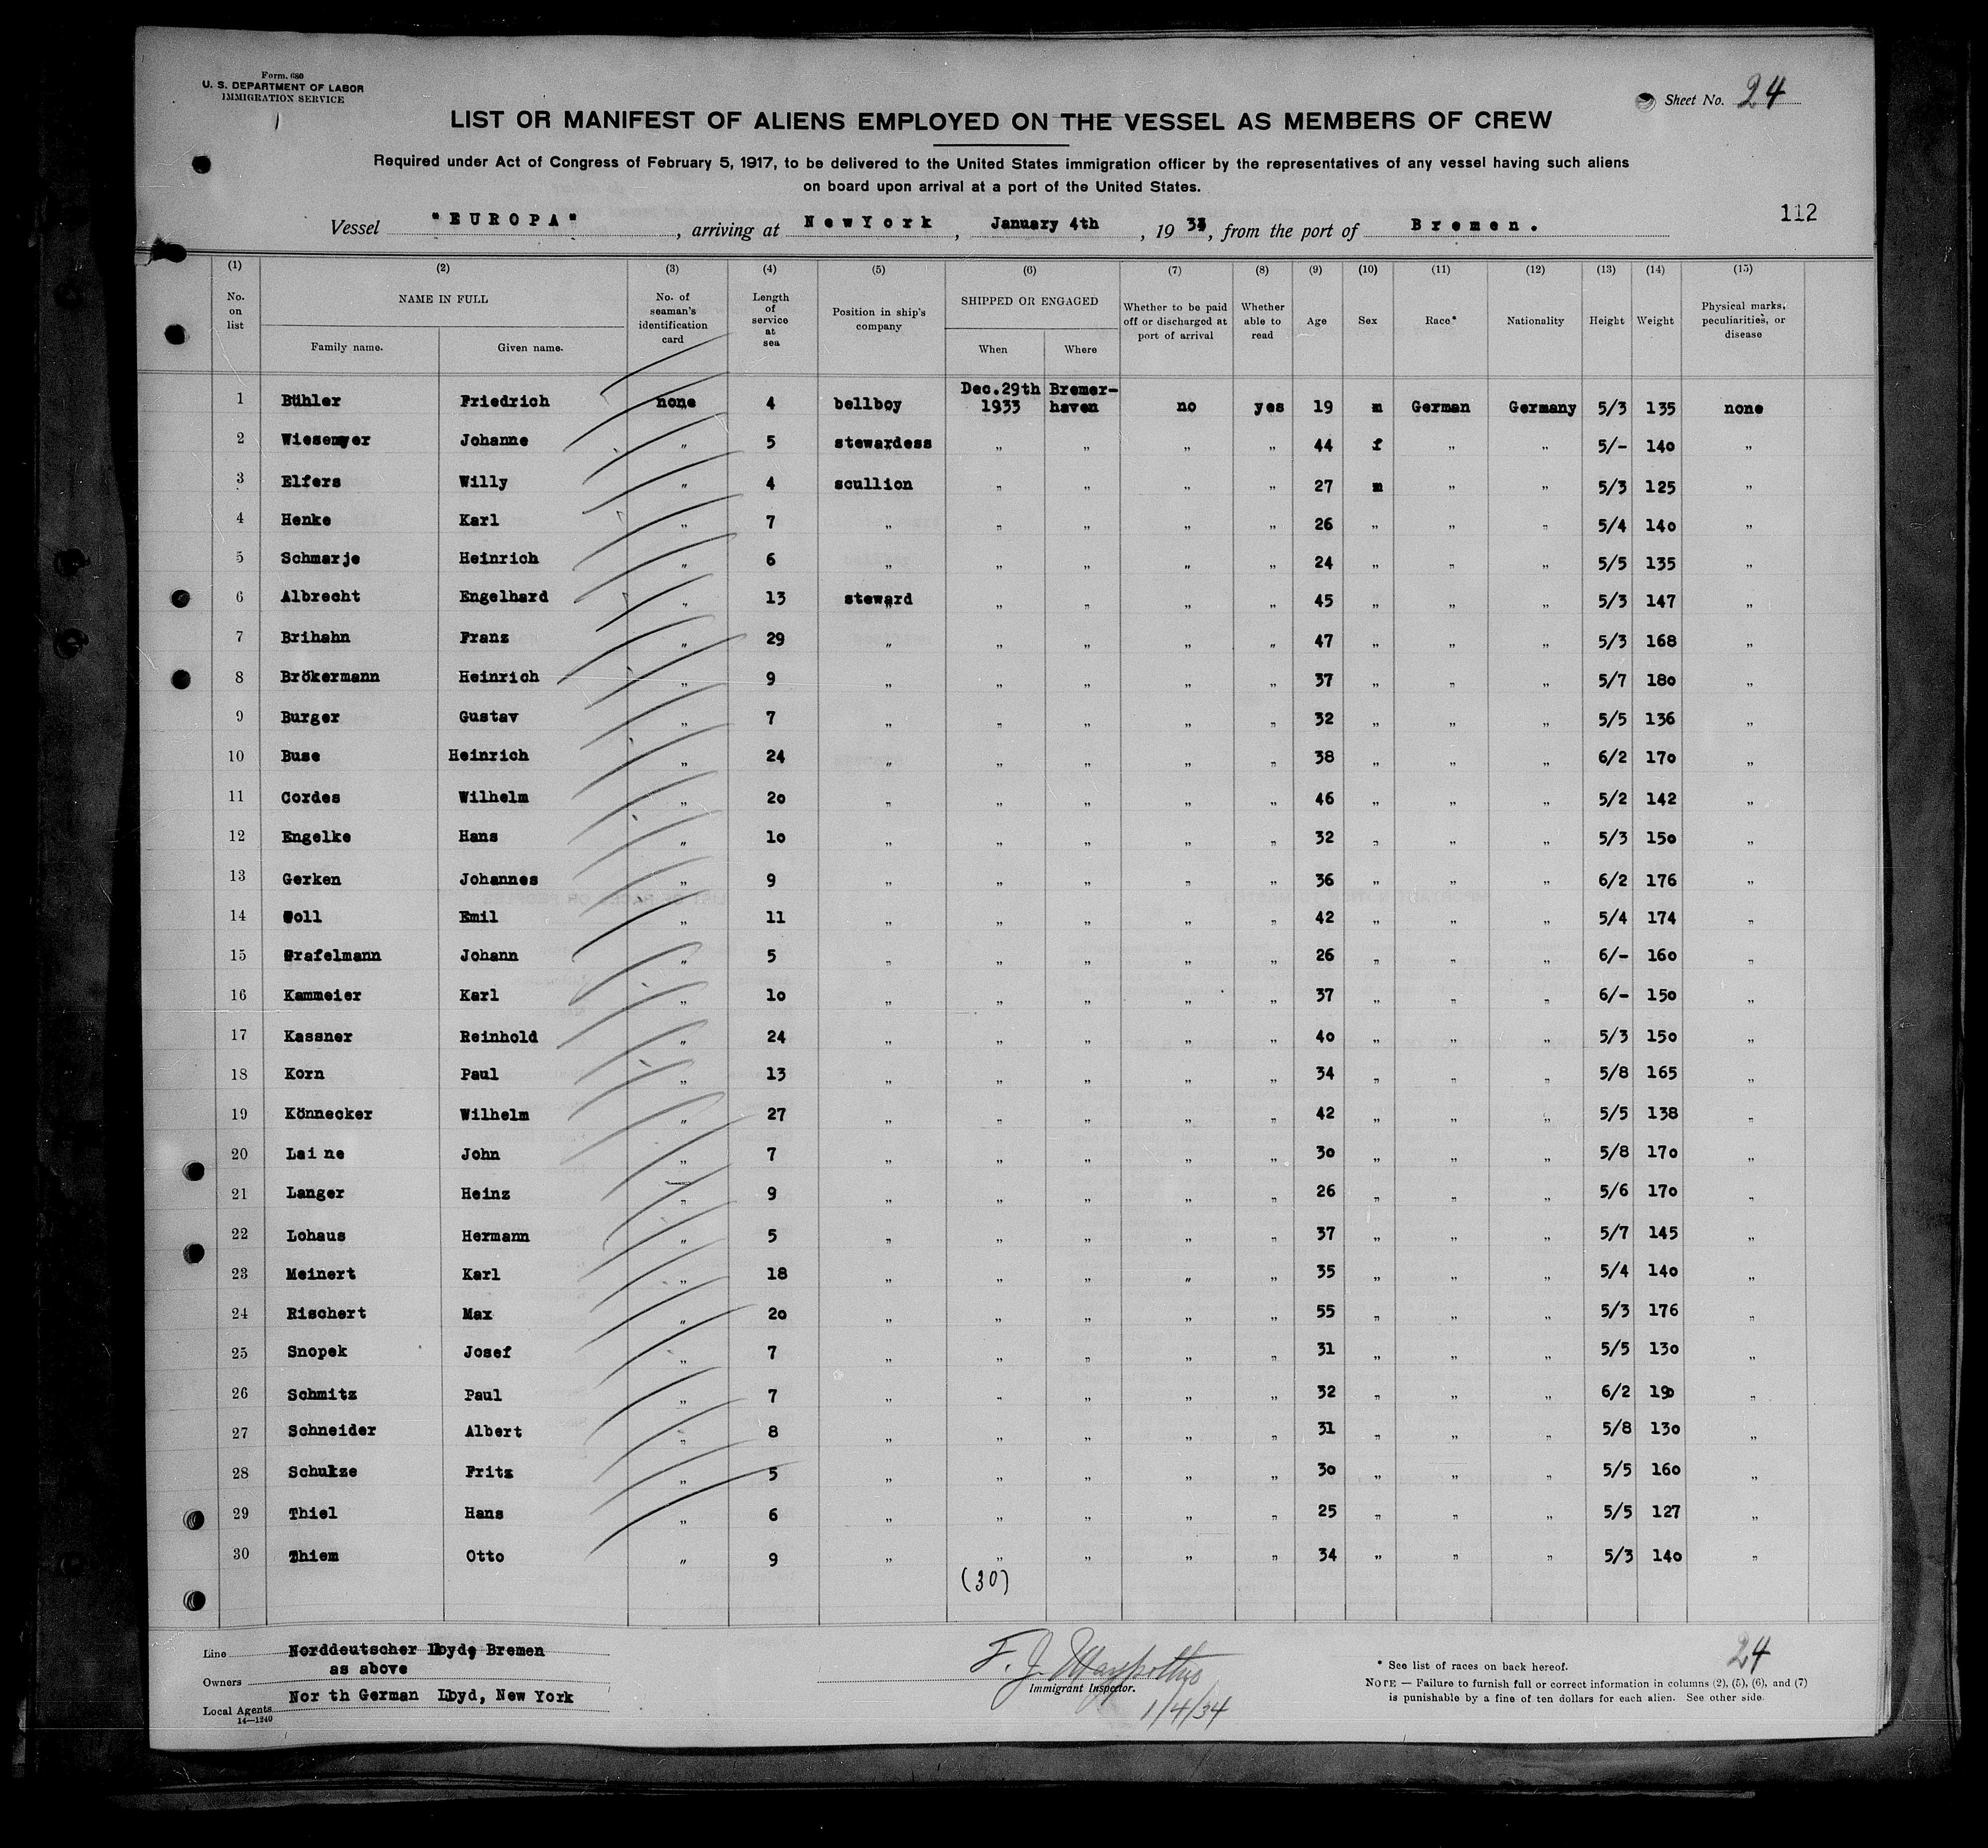 Form. 680
U. S. DEPARTMENT OF LABOR
IMMIGRATION SERVICE
Sheet No. 24
LIST OR MANIFEST OF ALIENS EMPLOYED ON THE VESSEL AS MEMBERS OF CREW
Required under Act of Congress of February 5, 1917, to be delivered to the United States immigration officer by the representatives of any vessel having such aliens
on board upon arrival at a port of the United States.
112
Vessel "EUROPA", arriving at NewYork, January 4th, 19, from the port of Bremen.
(1) (2) (3) (4) (5) (6) (7) (8) (9) (10) (11) (12) (13) (14) (15)
No. on list NAME IN FULL Family name. Given name. No. of seaman's identification card Length of service at sea Position in ship's company SHIPPED OR ENGAGED When Where Whether to be paid off or discharged at port of arrival Whether able to read Age Sex Race.* Nationality Height Weight Physical marks, peculiarities, or disease
1 Bühler Friedrich none 4 bellboy Dec.29th 1933 Bremer-haven no yes 19 m German Germany 5/3 135 none
2 Wiesemyer Johanne " 5 stewardess " " " " 44 f " " 5/- 140 "
3 Elfers Willy " 4 scullion " " " " 27 m " " 5/3 125 "
4 Henke Karl " 7 " " " " " 26 " " " 5/4 140 "
5 Schmarje Heinrich " 6 " " " " " 24 " " " 5/5 135 "
6 Albrecht Engelhard " 13 steward " " " " 45 " " " 5/3 147 "
7 Brihahn Franz " 29 " " " " " 47 " " " 5/3 168 "
8 Brökermann Heinrich " 9 " " " " " 37 " " " 5/7 180 "
9 Burger Gustav " 7 " " " " " 32 " " " 5/5 136 "
10 Buse Heinrich " 24 " " " " " 38 " " " 6/2 170 "
11 Cordes Wilhelm " 20 " " " " " 46 " " " 5/2 142 "
12 Engelke Hans " 10 " " " " " 32 " " " 5/3 150 "
13 Gerken Johannes " 9 " " " " " 36 " " " 6/2 176 "
14 Emil " 11 " " " " " 42 " " " 5/4 174 "
15 Grafelmann Johann " 5 " " " " " 26 " " " 6/- 160 "
16 Kammeier Karl " 10 " " " " " 37 " " " 6/- 150 "
17 Kassner Reinhold " 24 " " " " " 40 " " " 5/3 150 "
18 Korn Paul " 13 " " " " " 34 " " " 5/8 165 "
19 Könnecker Wilhelm " 27 " " " " " 42 " " " 5/5 138 "
20 Laine John " 7 " " " " " 30 " " " 5/8 170 "
21 Langer Heinz " 9 " " " " " 26 " " " 5/6 170 "
22 Lohaus Hermann " 5 " " " " " 37 " " " 5/7 145 "
23 Meinert Karl " 18 " " " " " 35 " " " 5/4 140 "
24 Rischert Max " 20 " " " " " 55 " " " 5/3 176 "
25 Snopek Josef " 7 " " " " " 31 " " " 5/5 130 "
26 Schmitz Paul " 7 " " " " " 32 " " " 6/2 190 "
27 Schneider Albert " 8 " " " " " 31 " " " 5/8 130 "
28 Schulze Fritz " 5 " " " " " 30 " " " 5/5 160 "
29 Thiel Hans " 6 " " " " " 25 " " " 5/5 127 "
30 Thiem Otto " 9 " " " " " 34 " " " 5/3 140 "
(30)
Line Norddeutscher Lloyd, Bremen
Owners as above
Local Agents North German Lloyd, New York
14—1240
F. J.
Immigrant Inspector.
1/4/34
24
* See list of races on back hereof.
NOTE — Failure to furnish full or correct information in columns (2), (5), (6), and (7)
is punishable by a fine of ten dollars for each alien. See other side.